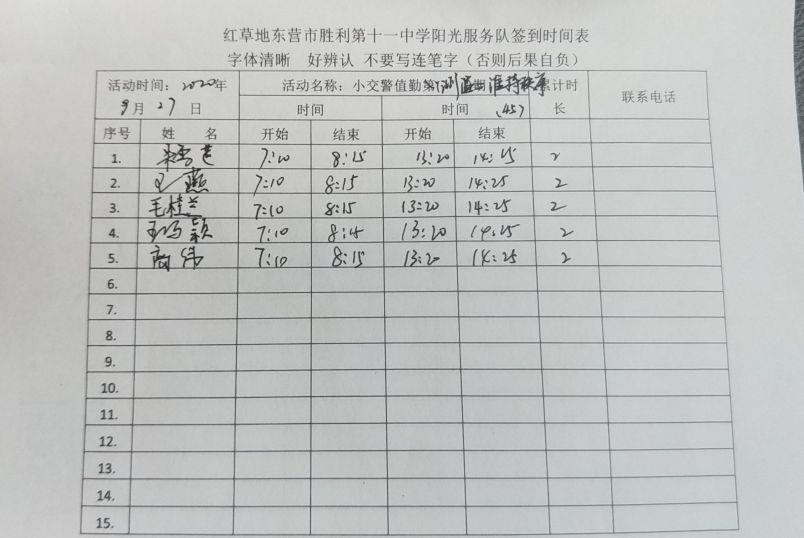 红草地东营市胜利第十一中学阳光服务队签到时间表
字体清晰 好辨认 不要写连笔字（否则后果自负）
活动时间：2020年 活动名称：小交警值勤 维持秩序 累计时 联系电话
9月27日 时间 时间 (45) 长
序号 姓名 开始 结束 开始 结束
1. 7:10 8:15 13:20 14:25 2
2. 王燕 7:10 8:15 13:20 14:25 2
3. 毛桂兰 7:10 8:15 13:20 14:25 2
4. 颖 7:10 8:15 13:20 14:25 2
5. 商伟 7:10 8:15 13:20 14:25 2
6.
7.
8.
9.
10.
11.
12.
13.
14.
15.